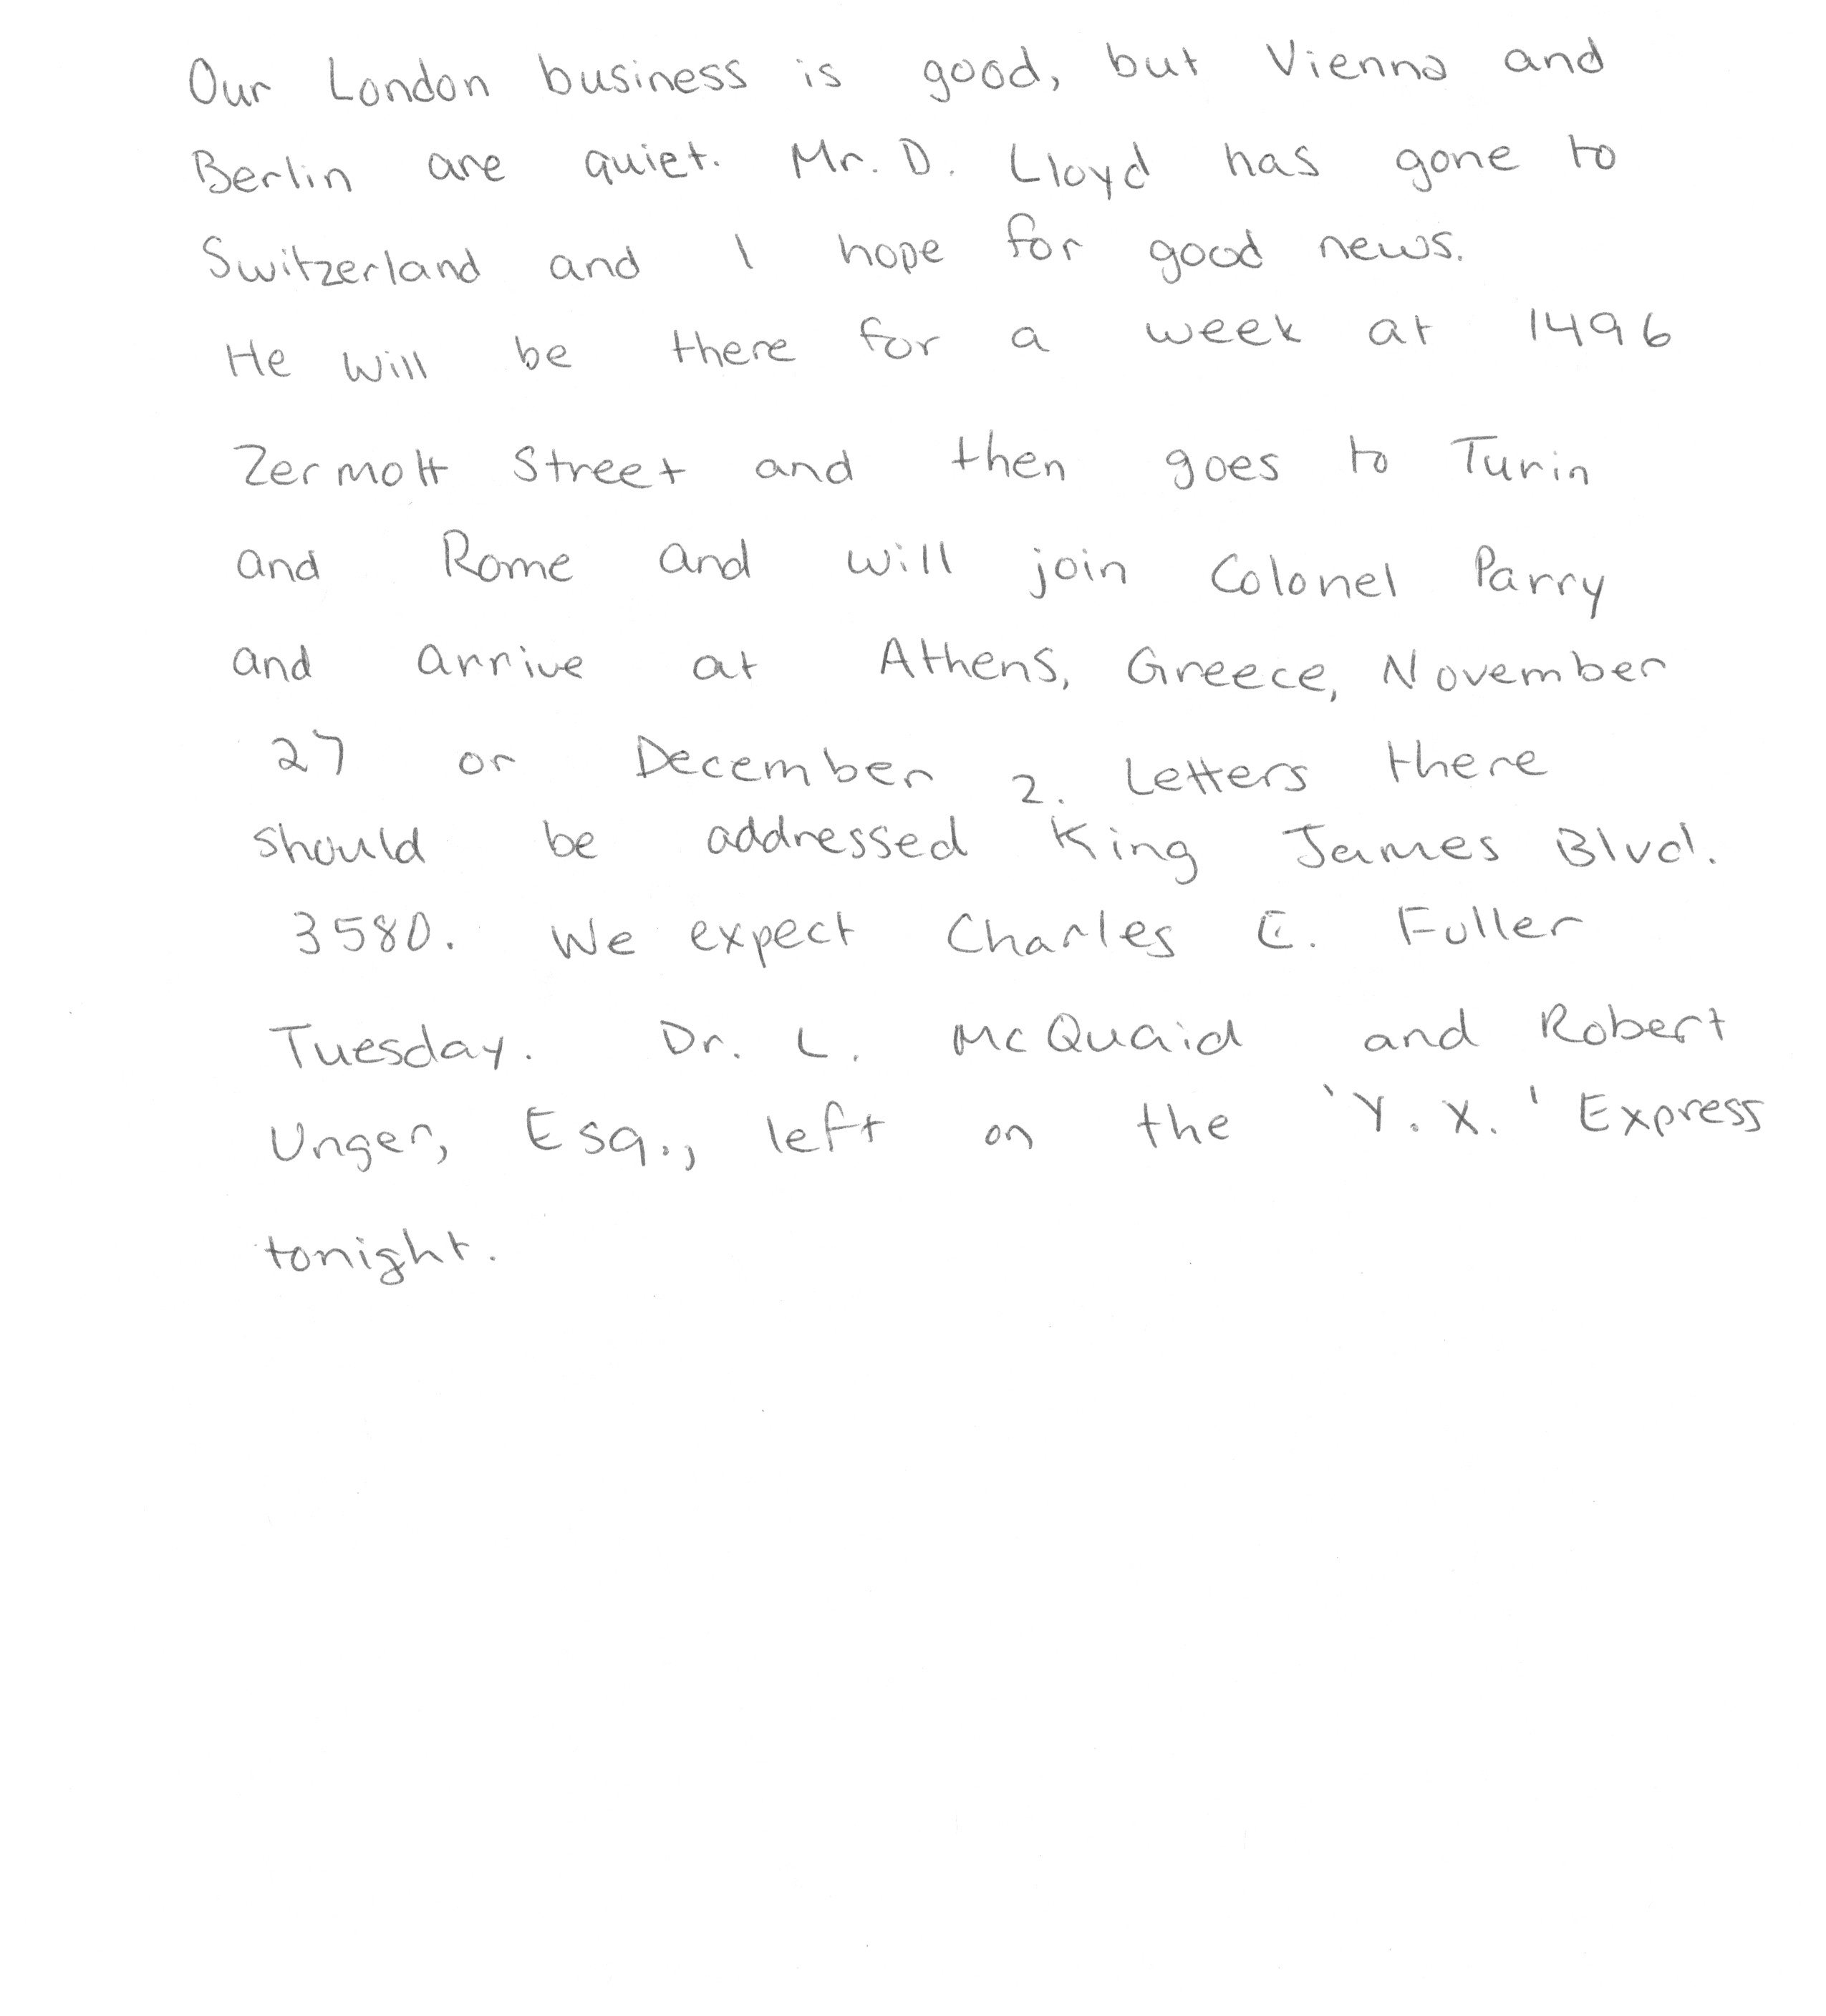 Our London business is good, but Vienna and
Berlin are quiet. Mr. D. Lloyd has gone to
Switzerland and I hope for good news.
He will be there for a week at 1496
Zermott Street and then goes to Turin
and Rome and will join Colonel Parry
and arrive at Athens, Greece, November
27 or December 2. Letters there
should be addressed King James Blvd.
3580. We expect Charles E. Fuller
Tuesday. Dr. L. McQuaid and Robert
Unger, Esq., left on the 'Y. X.' Express
tonight.